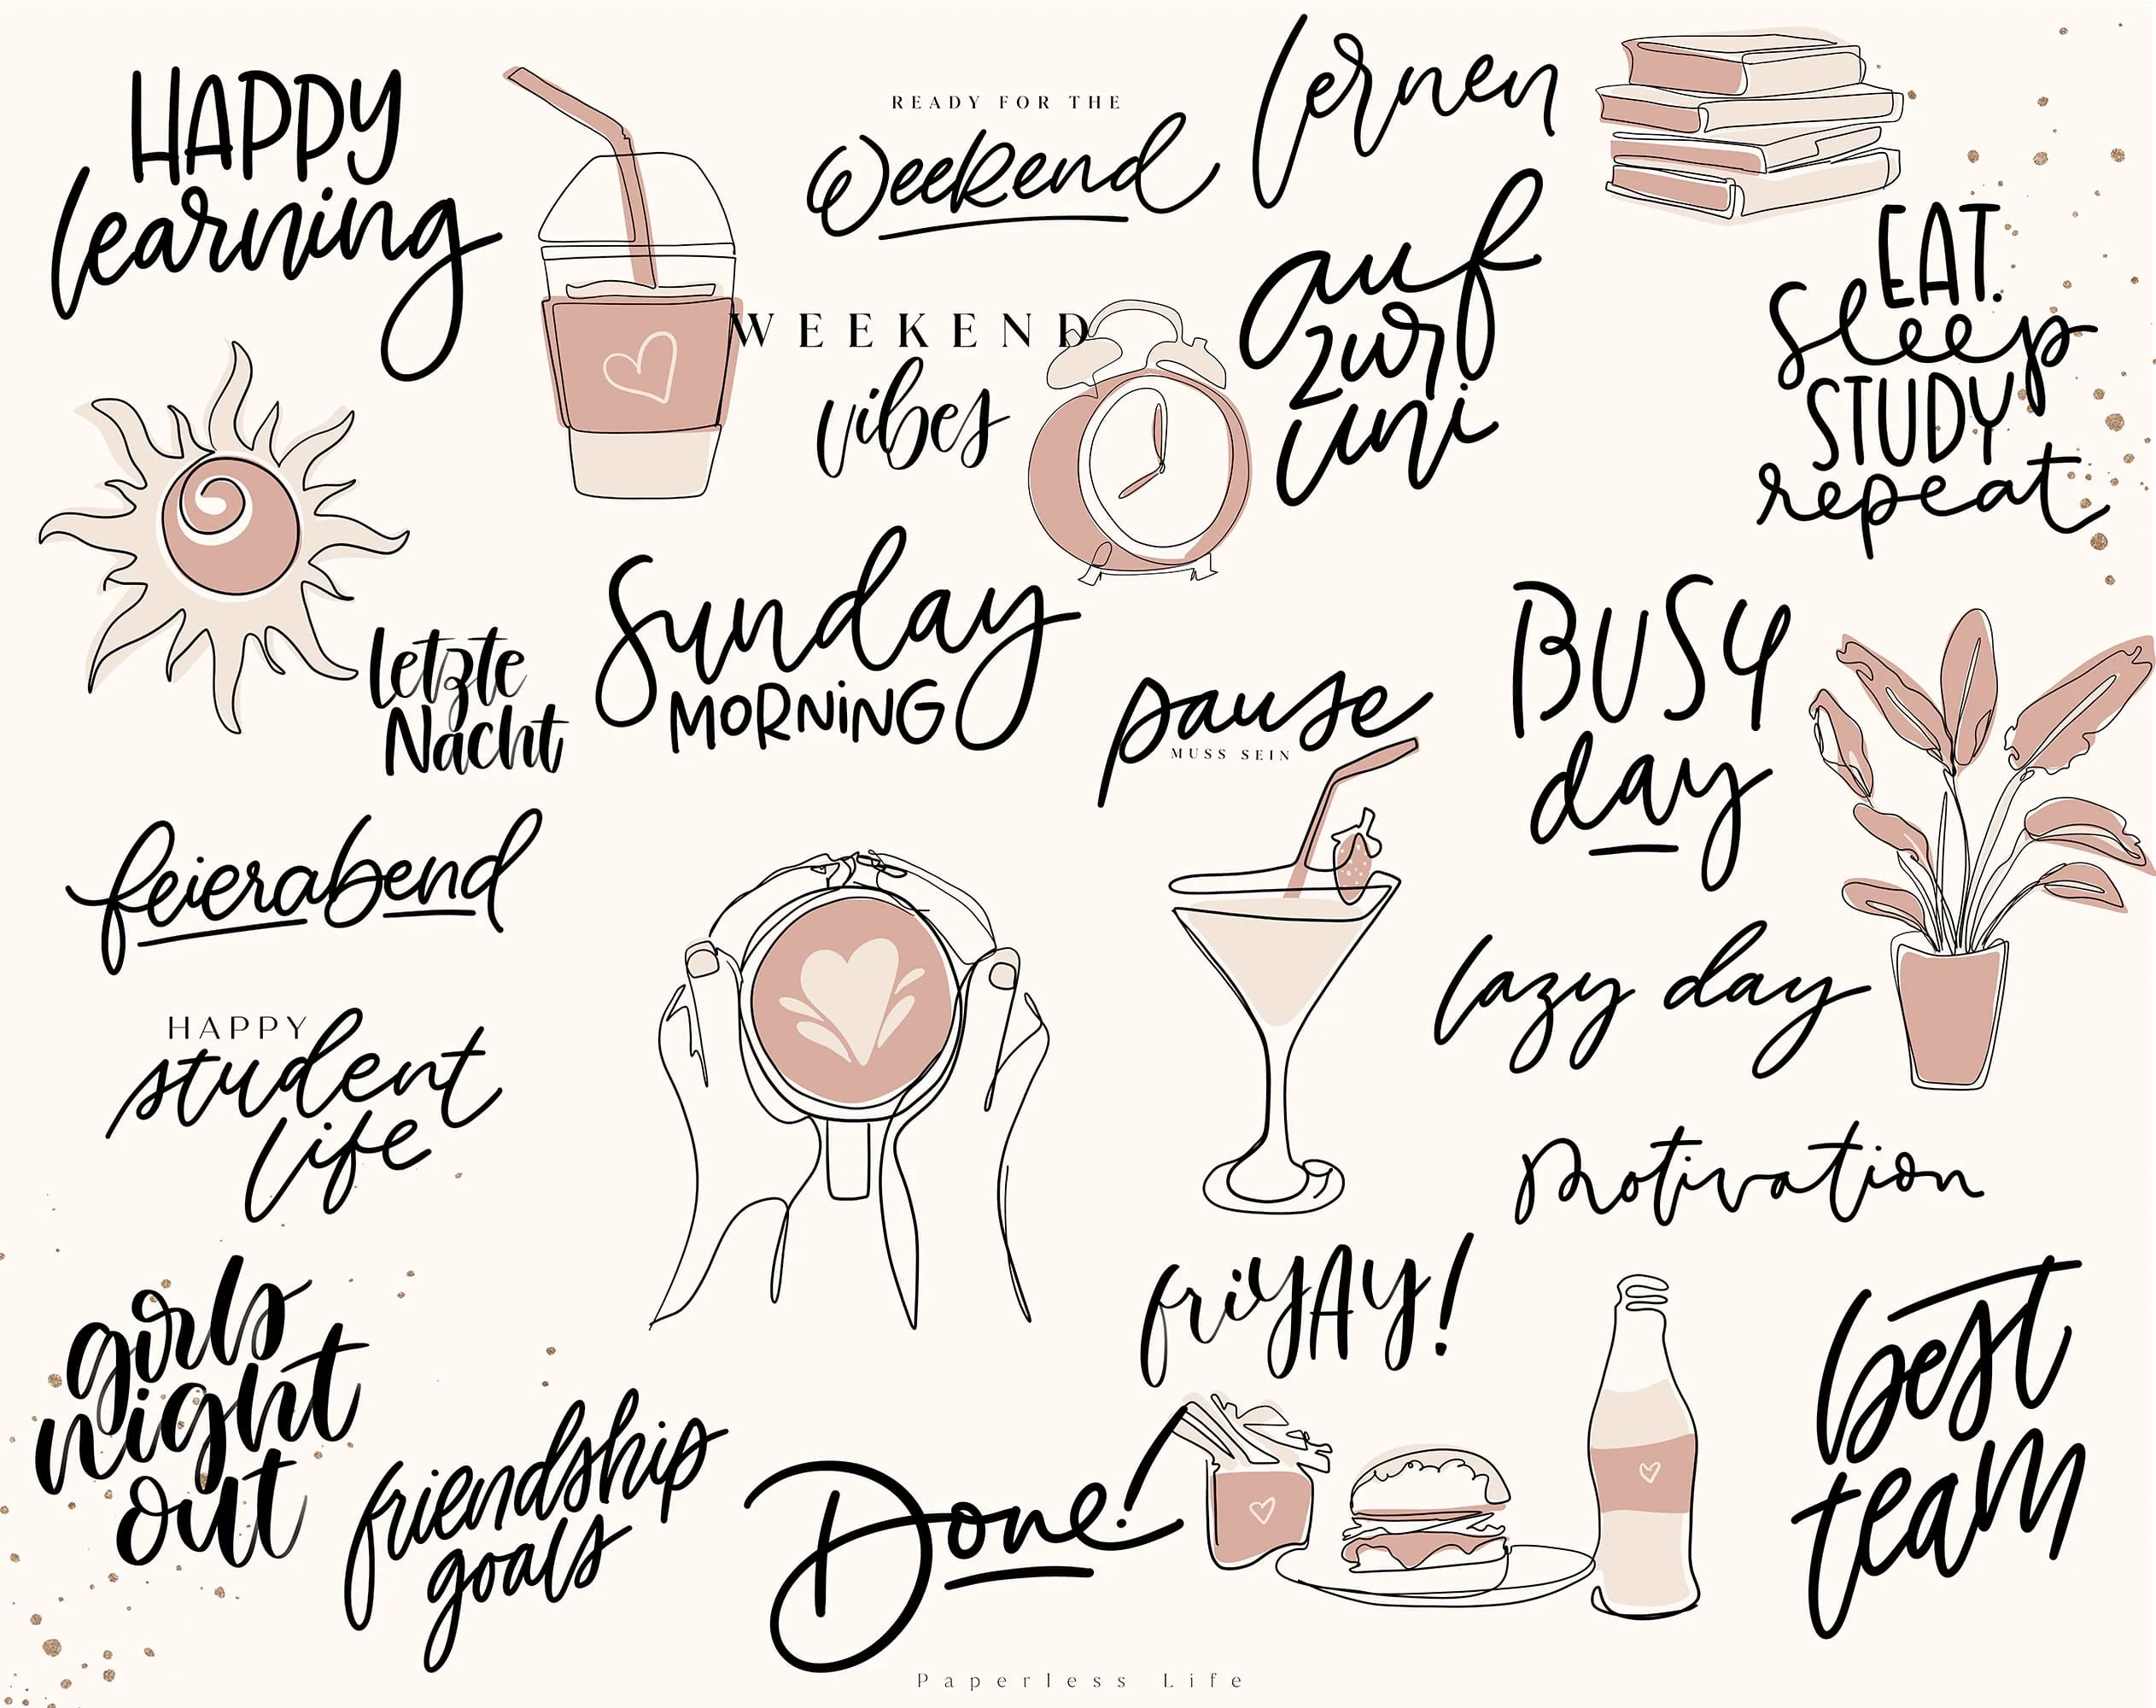 HAPPY
learning
READY FOR THE
Weekend
lernen
auf
zur
uni
EAT.
Sleep
STUDY
repeat
WEEKEND
vibes
letzte
Nacht
Sunday
MORNING
pause
MUSS SEIN
BUSY
day
feierabend
lazy day
HAPPY
student
life
Motivation
girls
night
out
friyAy!
best
team
friendship
goals
Done!
Paperless Life